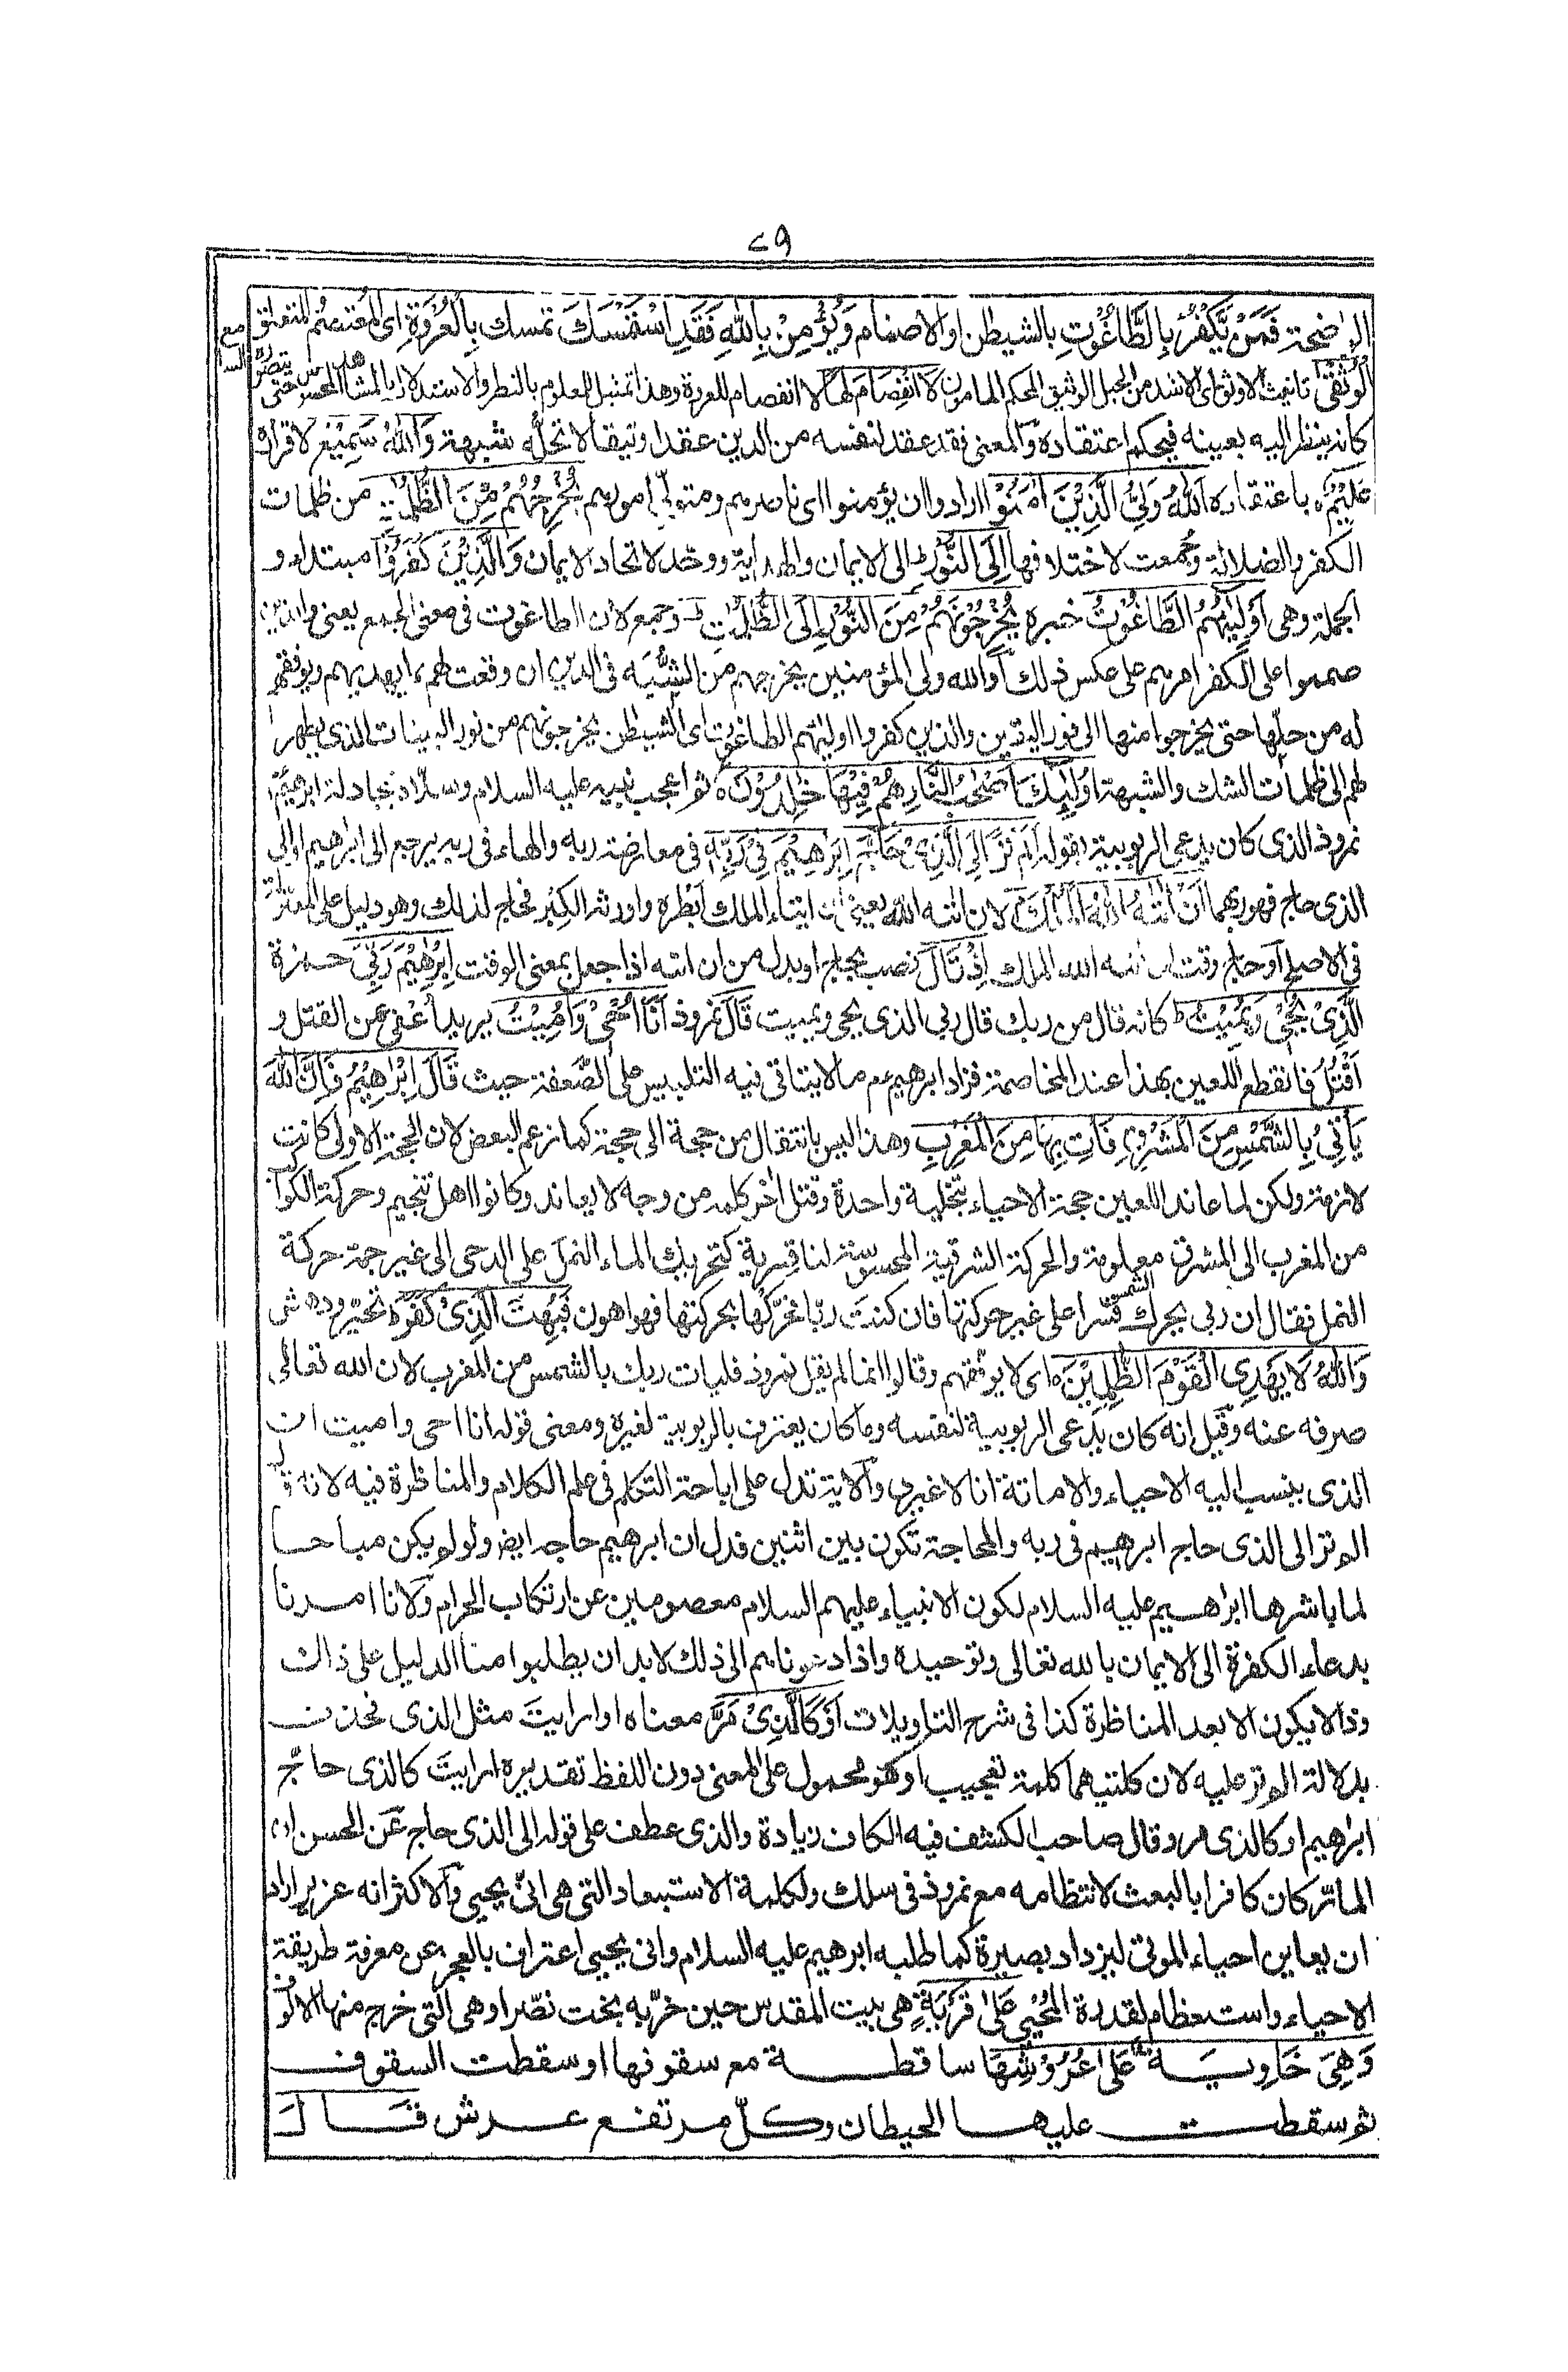 ٧٩
الواضحة فَمَنْ يَّكْفُرْ بِالطَّاغُوْتِ بالشيطن او الاصنام وَيُؤْمِنْ بِاللّٰهِ فَقَدِ اسْتَمْسَكَ تمسك بِالْعُرْوَةِ اى المعتصم المتعلق
الْوُثْقٰى تانيث الاوثق اى الاشد من الحبل الوثيق المحكم المامون لَا انْفِصَامَ لَهَا لا انقصام للعروة وهذا تمثيل للعلوم بالنظر والاستدلال بالمشاهد المحسوس حتى يتصوّره السامع
كانه ينظر اليه بعينه فيحكم اعتقاده والمعنى فقد عقد لنفسه من الدين عقدا وثيقا لا تحلّه شبهة وَاللّٰهُ سَمِيْعٌ لاقراره
عَلِيْمٌ ه باعتقاده اَللّٰهُ وَلِىُّ الَّذِيْنَ اٰمَنُوْا ارادوا ان يؤمنوا اى ناصرهم ومتولّى امورهم يُخْرِجُهُمْ مِّنَ الظُّلُمٰتِ من ظلمات
الكفر والضلالة وجُمعت لاختلافها اِلَى النُّوْرِ ط الى الايمان والهداية ووحّد لاتحاد الايمان وَالَّذِيْنَ كَفَرُوْا مبتداء و
الجملة وهى اَوْلِيٰٓئُهُمُ الطَّاغُوْتُ خبره يُخْرِجُوْنَهُمْ مِّنَ النُّوْرِ اِلَى الظُّلُمٰتِ ط وجمع لان الطاغوت فى معنى الجمع يعنى والذين
صمموا على الكفر امرهم على عكس ذلك اَو الله ولى المؤمنين يخرجهم من الشُّبَه فى الدين ان وقعت لهم بما يهديهم ويوفقهم
له من حلّها حتى يخرجوا منها الى نور اليقين والذين كفروا اوليٰٓئهم الطاغوت اى الشيطن يخرجونهم من نور البينات الذى يظهر
لهم الى ظلمات الشك والشبهة اُولٰٓئِكَ اَصْحٰبُ النَّارِ هُمْ فِيْهَا خٰلِدُوْنَ ه ثم اعجب نبيه عليه السلام وسلّاه بمجادلة ابرهيم ع
نمروذ الذى كان يدعى الربوبية بقوله اَلَمْ تَرَ اِلَى الَّذِىْ حَآجَّ اِبْرٰهِيْمَ فِىْ رَبِّهٖ فى معارضة ربه والهاء فى ربه يرجع الى ابرهيم او الى
الذى حاج فهو ربهما اَنْ اٰتٰهُ اللّٰهُ الْمُلْكَ لان اٰتٰه الله يعنى ان ايتاء الملك اَبْطَره واورثه الكِبْر فحاج لذلك وهو دليل على المعتزلة
فى الاصلح اَو حاج وقت ان اٰتٰه الله الملك اِذْ قَالَ نصب بحاجّ او بدل من ان اٰتٰه اذا جعل بمعنى الوقت اِبْرٰهِيْمُ رَبِّىَ حمزة
الَّذِىْ يُحْىٖ وَيُمِيْتُ ط كانه قال من ربك قال ربى الذى يحيى ويميت قَالَ نمروذ اَنَا اُحْىٖ وَاُمِيْتُ يريد اُعْفى عن القتل و
اَقْتُلُ فانقطع اللعين بهذا عند المخاصمة فزاد ابرهيم عم ما لا يتاتى فيه التلبيس على الضّعفة حيث قَالَ اِبْرٰهِيْمُ فَاِنَّ اللّٰهَ
يَاْتِىْ بِالشَّمْسِ مِنَ الْمَشْرِقِ فَاْتِ بِهَا مِنَ الْمَغْرِبِ وهذا ليس بانتقال من حجة الى حجة كما زعم البعض لان الحجة الاولى كانت
لازمة ولكن لما عاند اللعين حجة الاحياء بتخلية واحدة وقتل اٰخر كلمه من وجه لا يعاند وكانوا اهل تنجيم وحركة الكواكب
من المغرب الى المشرق معلومة والحركة الشرقية المحسوسة لنا قسرية كتحريك الماء النمل على الرحى الى غير جهة حركة
النمل فقال ان ربى يحرك الشمس قسرا على غير حركتها فان كنت ربّا فحرّكها بحركتها فهو اهون فَبُهِتَ الَّذِىْ كَفَرَ ه تحيّر ودهش
وَاللّٰهُ لَا يَهْدِى الْقَوْمَ الظّٰلِمِيْنَ ه اى لا يوفّقهم وقالوا انما لم يقل نمروذ فليات ربك بالشمس من المغرب لان الله تعالى
صرفه عنه وقيل انه كان يدعى الربوبية لنفسه وما كان يعترف بالربوبية لغيره ومعنى قوله انا احى واميت ان
الذى ينسب اليه الاحياء والاماتة انا لا غيرى والاية تدل على اباحة التكلم فى علم الكلام والمناظرة فيه لانه قال
الم تر الى الذى حاج ابرهيم فى ربه والمحاجة تكون بين اثنين فدل ان ابرهيم حاجه ايضا ولو لم يكن مباحا
لما باشرها ابراهيم عليه السلام لكون الانبياء عليهم السلام معصومين عن ارتكاب الحرام ولانا امرنا
بدعاء الكفرة الى الايمان بالله تعالى وتوحيده واذا دعوناهم الى ذلك لا بد ان يطلبوا منا الدليل على ذلك
وذا لا يكون الا بعد المناظرة كذا فى شرح التاويلات اَوْ كَالَّذِىْ مَرَّ معناه او ارايت مثل الذى فحذف
بدلالة الم تر عليه لان كلتيهما كلمة تعجيب او هو محمول على المعنى دون اللفظ تقديره ارايت كالذى حاجّ
ابراهيم او كالذى مر وقال صاحب الكشف فيه الكاف زيادة والذى عطف على قوله الى الذى حاج عن الحسن ان
المارّ كان كافرا بالبعث لانتظامه مع نمروذ فى سلك ولكلمة الاستبعاد التى هى انّى يحيى والاكثر انه عزير اراد
ان يعاين احياء الموتى ليزداد بصيرة كما طلبه ابرهيم عليه السلام وانى يحيى اعتراف بالعجز عن معرفة طريقة
الاحياء واستعظام لقدرة المُحْيى عَلٰى قَرْيَةٍ هى بيت المقدس حين خرّبه بخت نصّر او هى التى خرج منها الالوف
وَهِىَ خَاوِيَةٌ عَلٰى عُرُوْشِهَا ساقطة مع سقوفها او سقطت السقوف
ثم سقطت عليها الحيطان وكلّ مرتفع عرش قَالَ